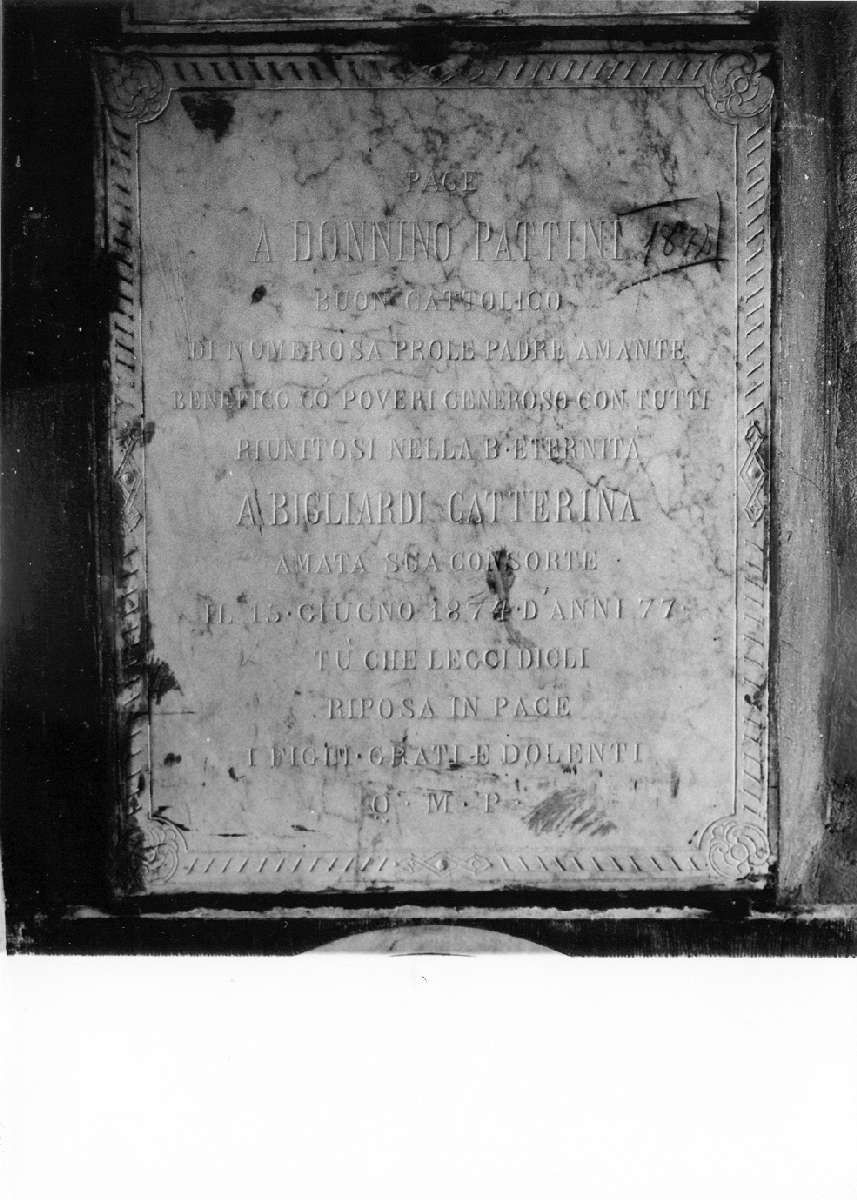 PACE
A DONNINO PATTINI
1874
BUON CATTOLICO
DI NUMEROSA PROLE PADRE AMANTE
BENEFICO CÒ POVERI GENEROSO CON TUTTI
RIUNITOSI NELLA B·ETERNITÀ
A BIGLIARDI CATTERINA
AMATA SUA CONSORTE
IL 15·GIUGNO·1874·D'ANNI 77·
TÙ CHE LEGGI DIGLI
RIPOSA IN PACE
I FIGLI·GRATI·E DOLENTI
Q·M·P·